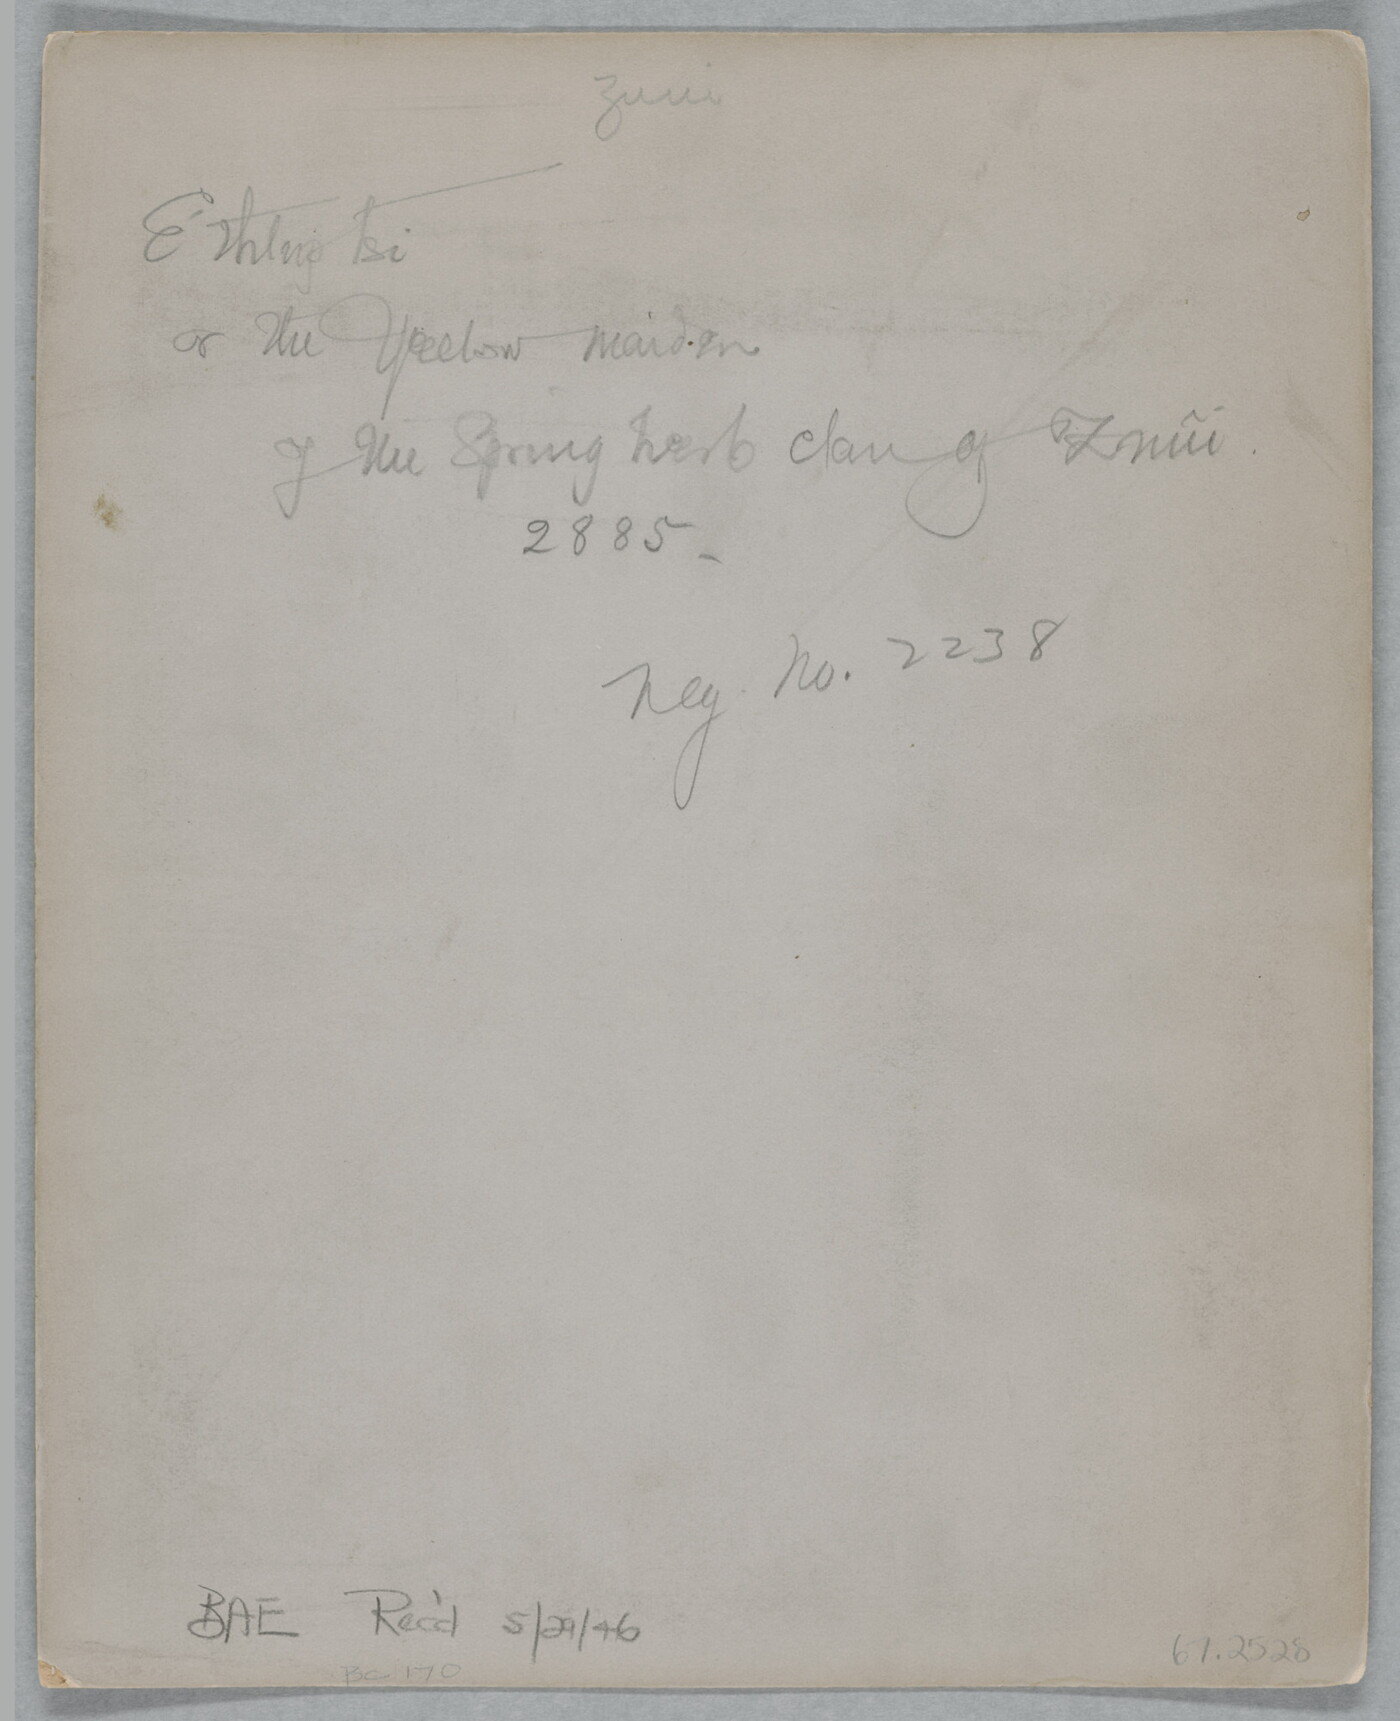 Zuni
or the Yellow maiden
of the Spring herb clan of Zuñi.
2885-
Neg. No. 2238
BAE Rec'd 5/29/46
BC 170
67.2528